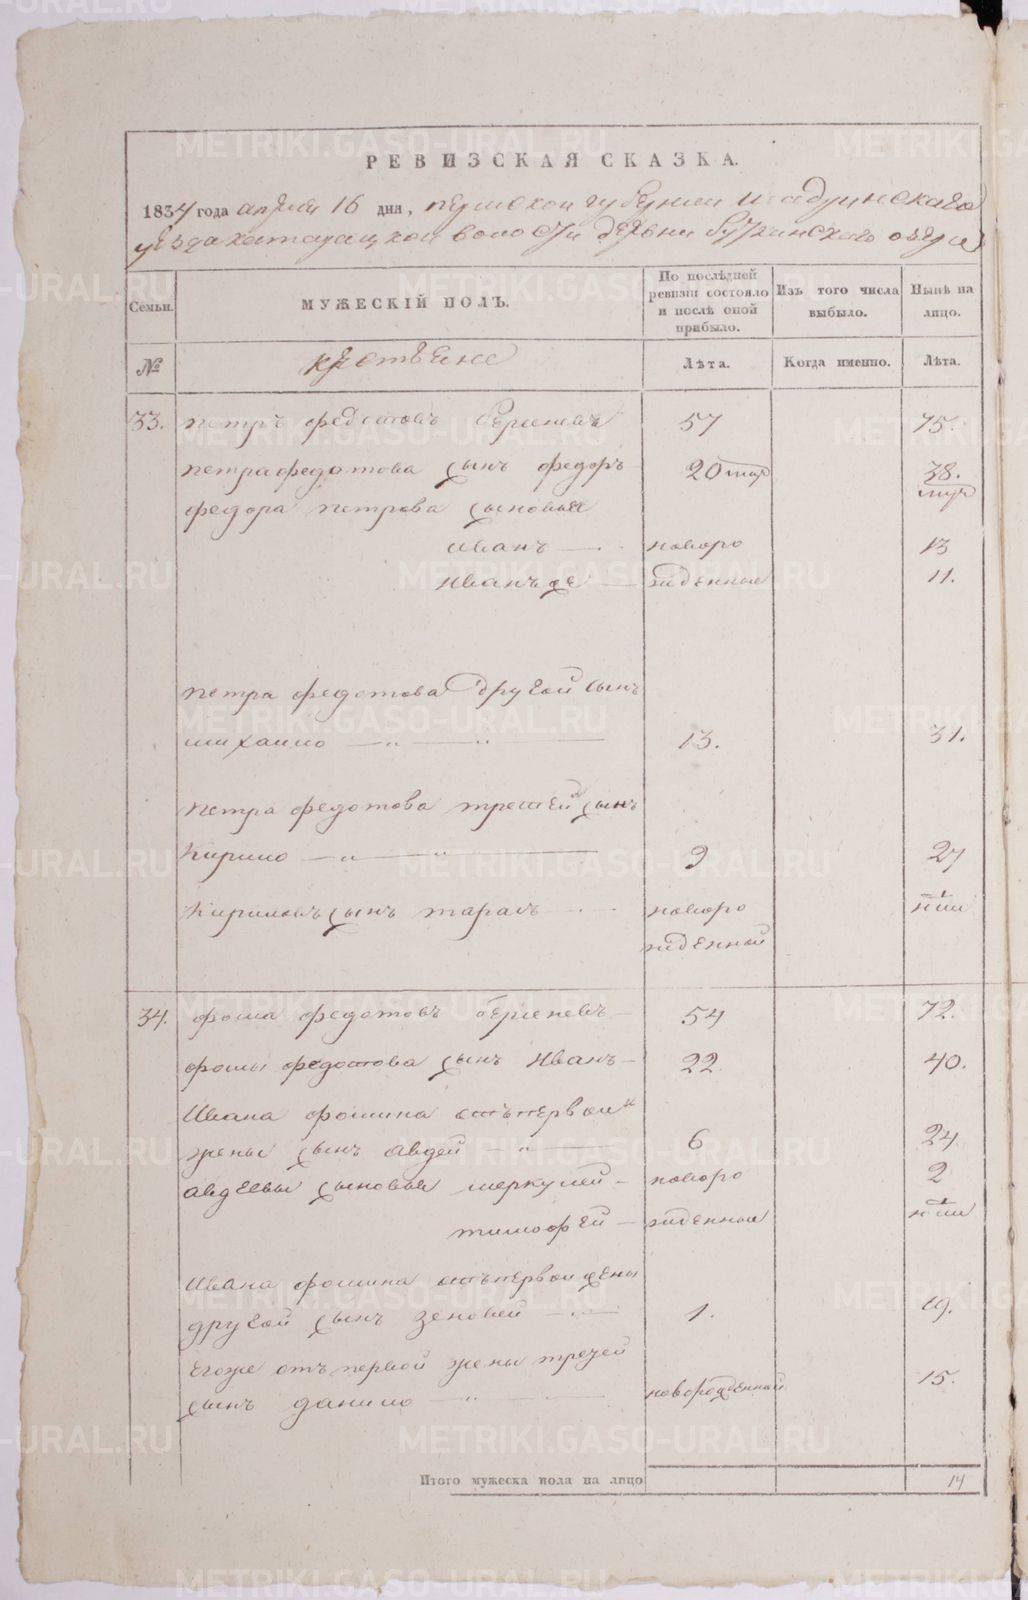 РЕВИЗСКАЯ СКАЗКА.
1834 года апреля 16 дня, пермской губернии шадринскаго
уезда катайцкой волости деревни озера
Семьи.
МУЖЕСКІЙ ПОЛЪ.
По послѣдней ревизіи состояло и послѣ оной прибыло.
Изъ того числа выбыло.
Нынѣ на лицо.
№
крестьяне
Лѣта.
Когда именно.
Лѣта.
33. петръ федотовъ берсеневъ 57 75.
петра федотова сынъ федоръ 20 38.
федора петрова сыновья
иванъ новоро 13
иванъ же жденные 11.
петра федотова другой сынъ
михаило 13. 31.
петра федотова третей сынъ
Кирило 9 27
Кириловъ сынъ тарасъ новоро
жденной
34. фома федотовъ берсеневъ 54 72.
фомы федотова сынъ иванъ 22 40.
Ивана фомина отъ первой
жены сынъ авдей 6 24
авдеевы сыновья меркулей новоро 2
тимофей жденные
Ивана фомина отъ первой жены
другой сынъ зеновей 1. 19.
Егоже отъ первой жены третей
сынъ данило новорожденной 15.
Итого мужеска пола на лицо 14
METRIKI.GASO-URAL.RU